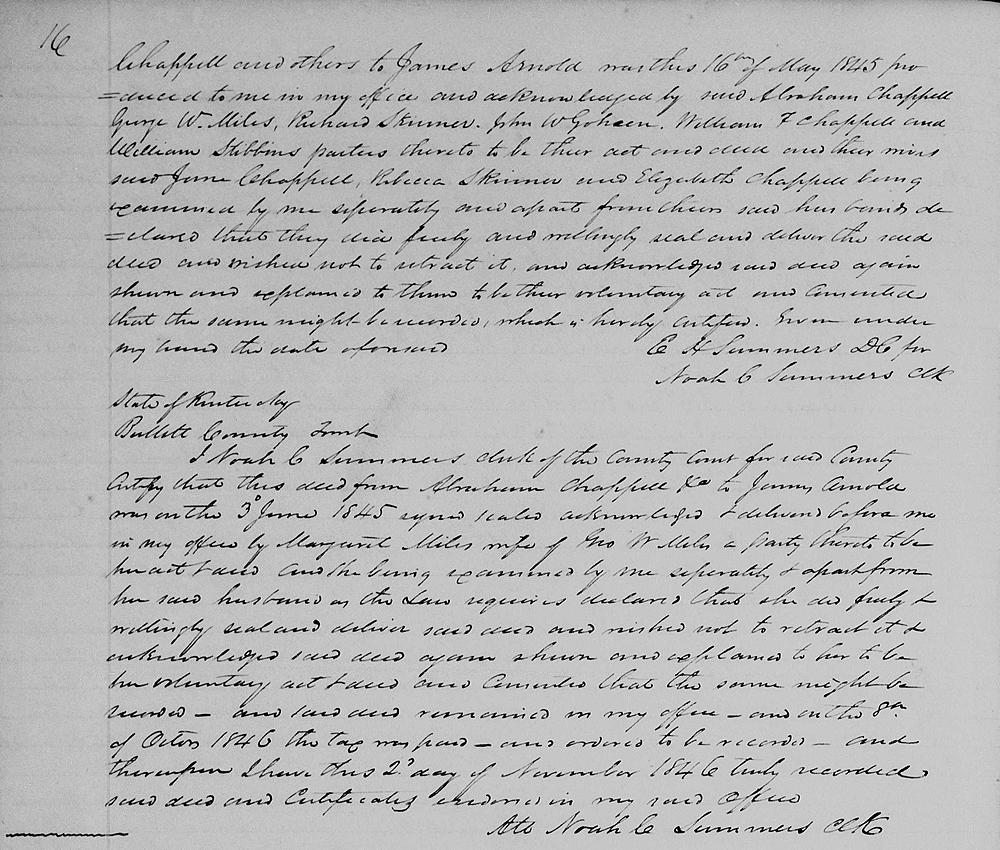 16
Chappell and others to James Arnold was this 16th of May 1845 pro
=duced to me in my office and acknowledged by said Abraham Chappell
George W. Miles, Richard Skinner. John W Goheen. William F Chappell and
William Stibbins parties thereto to be their act and deed and their wives
said Jane Chappell, Rebecca Skinner and Elizabeth Chappell being
examined by me seperately and apart from theirs said husbands de
=clared that they did freely and willingly seal and deliver the said
deed and wished not to retract it, and acknowledged said deed again
shewn and explained to them to be their voluntary act and consented
that the same might be recorded, which is hereby certified. Given under
my hand the date aforesaid C H Summers DC for
Noah C Summers Clk
State of Kentucky
Bullitt County Sct
I Noah C Summers clerk of the County Court for said County
Certify that this deed from Abraham Chappell &c to James Arnold
was on the 3d June 1845 signed sealed acknowledged & delivered before me
in my office by Margaret Miles wife of Geo W Miles a party thereto to be
her act & deed and she being examined by me seperately & apart from
her said husband as the Law requires declared that she did freely &
willingly seal and deliver said deed and wished not to retract it &
acknowledged said deed again shewn and explained to her to be
her voluntary act & deed and consented that the same might be
recorded – and said deed remained in my office – and on the 8th
of Octor 1846 the tax was paid – and ordered to be recorded – and
thereupon I have this 2d day of November 1846 truly recorded
said deed and Certificates endorsed in my said office
Att Noah C Summers Clk